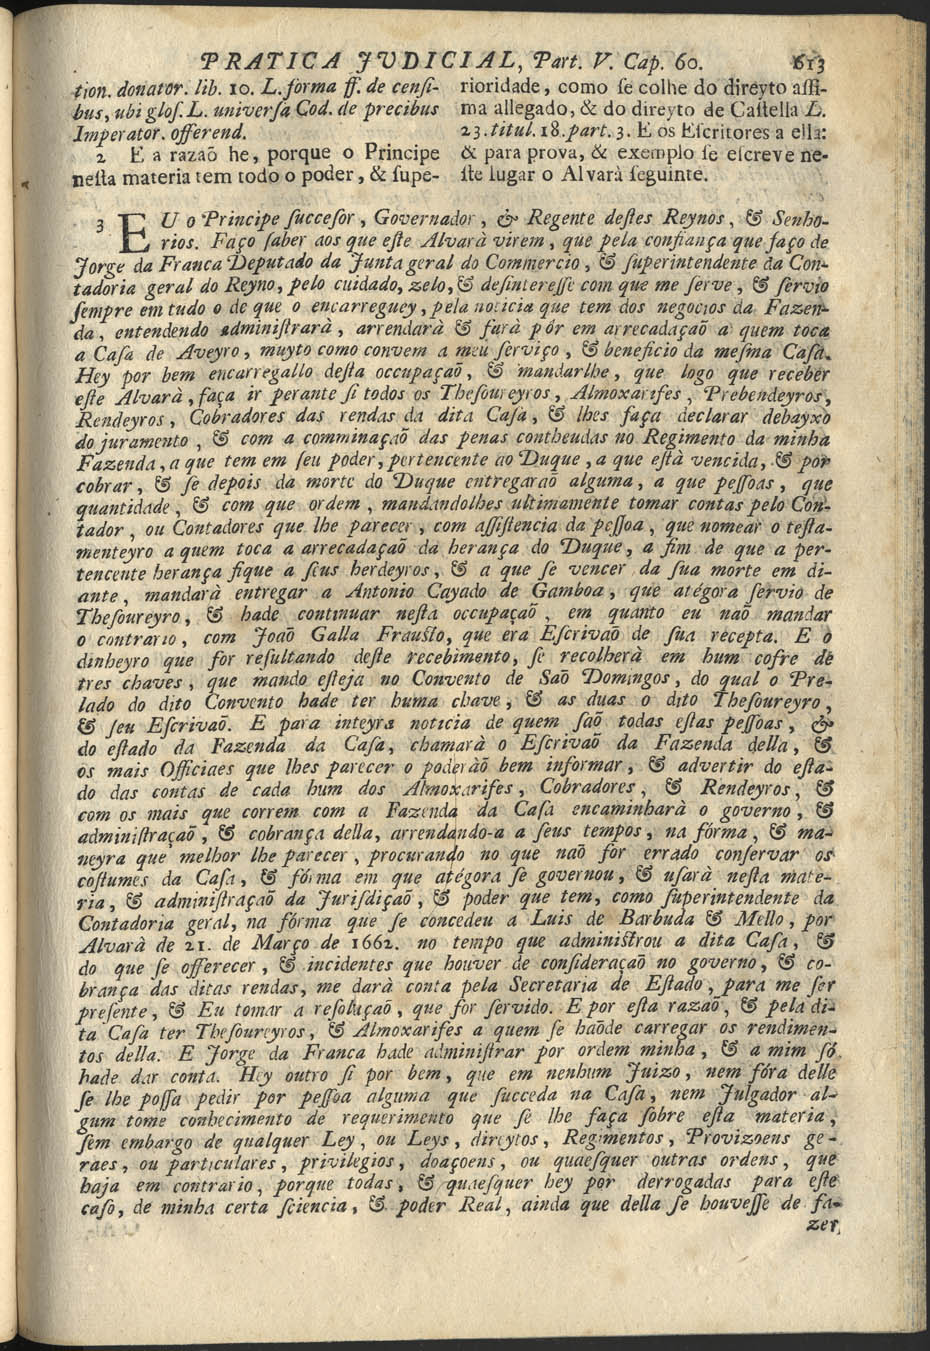 PRATICA JVDICIAL, Part. V. Cap. 60. 613
tion. donator. lib. 10. L. forma ff. de censi-
bus, ubi glos. L. universa Cod. de precibus
Imperator. offerend.
2 E a razaõ he, porque o Principe
nesta materia tem todo o poder, & supe-
rioridade, como se colhe do direyto assi-
ma allegado, & do direyto de Castella L.
23. titul. 18. part. 3. E os Escritores a ella:
& para prova, & exemplo se escreve ne-
ste lugar o Alvarà seguinte.
3 EU o Principe succesor, Governador, & Regente destes Reynos, & Senho-
rios. Faço saber aos que este Alvarà virem, que pela confiança que faço de
Jorge da Franca Deputado da Junta geral do Commercio, & superintendente da Con-
tadoria geral do Reyno, pelo cuidado, zelo, & desinteresse com que me serve, & servio
sempre em tudo o de que o encarreguey, pela noticia que tem dos negocios da Fazen-
da, entendendo administrarà, arrendarà & farà pór em arrecadaçaõ a quem toca
a Casa de Aveyro, muyto como convem a meu serviço, & beneficio da mesma Casa.
Hey por bem encarregallo desta occupaçaõ, & mandarlhe, que logo que receber
este Alvarà, faça ir perante si todos os Thesoureyros, Almoxarifes, Prebendeyros,
Rendeyros, Cobradores das rendas da dita Casa, & lhes faça declarar debayxo
do juramento, & com a comminaçaõ das penas contheudas no Regimento da minha
Fazenda, a que tem em seu poder, pertencente ao Duque, a que està vencida, & por
cobrar, & se depois da morte do Duque entregaraõ alguma, a que pessoas, que
quantidade, & com que ordem, mandandolhes ultimamente tomar contas pelo Con-
tador, ou Contadores que lhe parecer, com assistencia da pessoa, que nomear o testa-
menteyro a quem toca a arrecadaçaõ da herança do Duque, a fim de que a per-
tencente herança fique a seus herdeyros, & a que se vencer da sua morte em di-
ante, mandarà entregar a Antonio Cayado de Gamboa, que atégora servio de
Thesoureyro, & hade continuar nesta occupaçaõ, em quanto eu naõ mandar
o contrario, com Joaõ Galla Frausto, que era Escrivaõ de sua recepta. E o
dinheyro que for resultando deste recebimento, se recolherà em hum cofre de
tres chaves, que mando esteja no Convento de Saõ Domingos, do qual o Pre-
lado do dito Convento hade ter huma chave, & as duas o dito Thesoureyro,
& seu Escrivaõ. E para inteyra noticia de quem saõ todas estas pessoas, &
do estado da Fazenda da Casa, chamarà o Escrivaõ da Fazenda della, &
os mais Officiaes que lhes parecer o poderàõ bem informar, & advertir do esta-
do das contas de cada hum dos Almoxarifes, Cobradores, & Rendeyros, &
com os mais que correm com a Fazenda da Casa encaminharà o governo, &
administraçaõ, & cobrança della, arrendando-a a seus tempos, na fórma, & ma-
neyra que melhor lhe parecer, procurando no que naõ for errado conservar os
costumes da Casa, & fórma em que atégora se governou, & usarà nesta mate-
ria, & administraçaõ da Jurisdiçaõ, & poder que tem, como superintendente da
Contadoria geral, na fórma que se concedeu a Luis de Barbuda & Mello, por
Alvarà de 21. de Março de 1662. no tempo que administrou a dita Casa, &
do que se offerecer, & incidentes que houver de consideraçaõ no governo, & co-
brança das ditas rendas, me darà conta pela Secretaria de Estado, para me ser
presente, & Eu tomar a resoluçaõ, que for servido. E por esta razaõ, & pela di-
ta Casa ter Thesoureyros, & Almoxarifes a quem se haõde carregar os rendimen-
tos della. E Jorge da Franca hade administrar por ordem minha, & a mim só
hade dar conta. Hey outro si por bem, que em nenhum Juizo, nem fóra delle
se lhe possa pedir por pessoa alguma que succeda na Casa, nem Julgador al-
gum tome conhecimento de requerimento que se lhe faça sobre esta materia,
sem embargo de qualquer Ley, ou Leys, direytos, Regimentos, Provizoens ge-
raes, ou particulares, privilegios, doaçoens, ou quaesquer outras ordens, que
haja em contrario, porque todas, & quaesquer hey por derrogadas para este
caso, de minha certa sciencia, & poder Real, ainda que della se houvesse de fa-
zer,